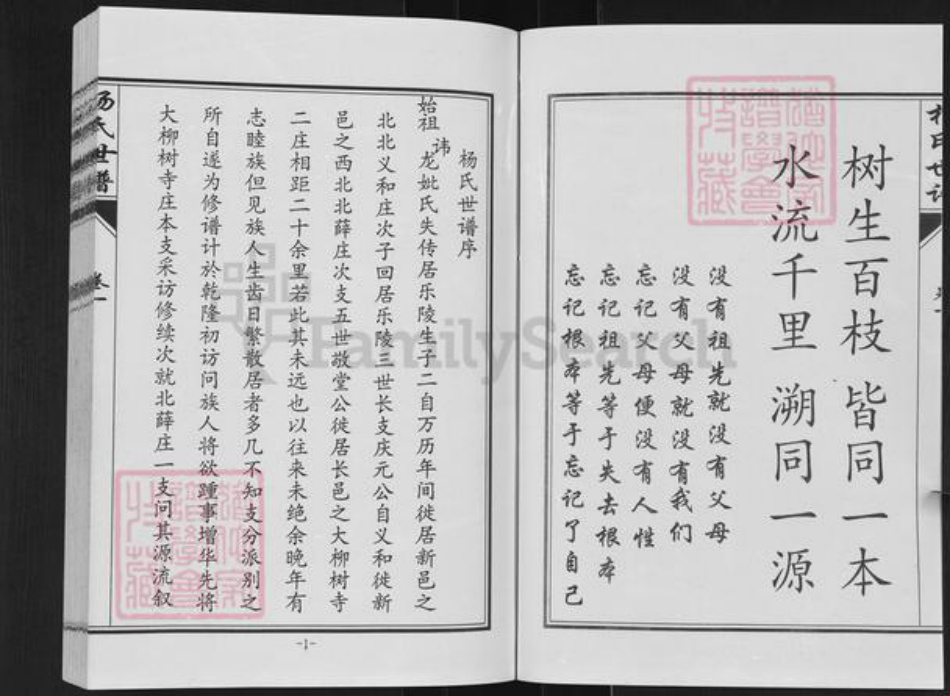 树生百枝 皆同一本
水流千里 溯同一源
没有祖先就没有父母
没有父母就没有我们
忘记父母便没有人性
忘记祖先等于失去根本
忘记根本等于忘记了自己
杨氏世谱
卷一
杨氏世谱序
始祖讳龙妣氏失传居乐陵生子二自万历年间徙居新邑之
北北义和庄次子回居乐陵三世长支庆元公自义和徙新
邑之西北北薛庄次支五世敬堂公徙居长邑之大柳树寺
二庄相距二十余里若此其未远也以往来未绝余晚年有
志睦族但见族人生齿日繁散居者多几不知支分派别之
所自遂为修谱计於乾隆初访问族人将欲踵事增华先将
大柳树寺庄本支采访修续次就北薛庄一支问其源流叙
-1-
FamilySearch